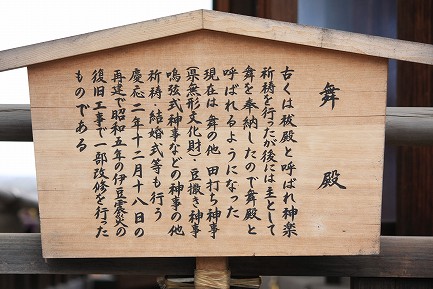 舞殿
古くは祓殿と呼ばれ神楽
祈祷を行ったが後には主として
舞を奉納したので舞殿と
呼ばれるようになった
現在は舞の他 田打ち神事
(県無形文化財)・豆撒き神事
鳴弦式神事などの神事の他
祈祷・結婚式等も行う
慶応二年十二月十八日の
再建で昭和五年の伊豆震災の
復旧工事で一部改修を行った
ものである